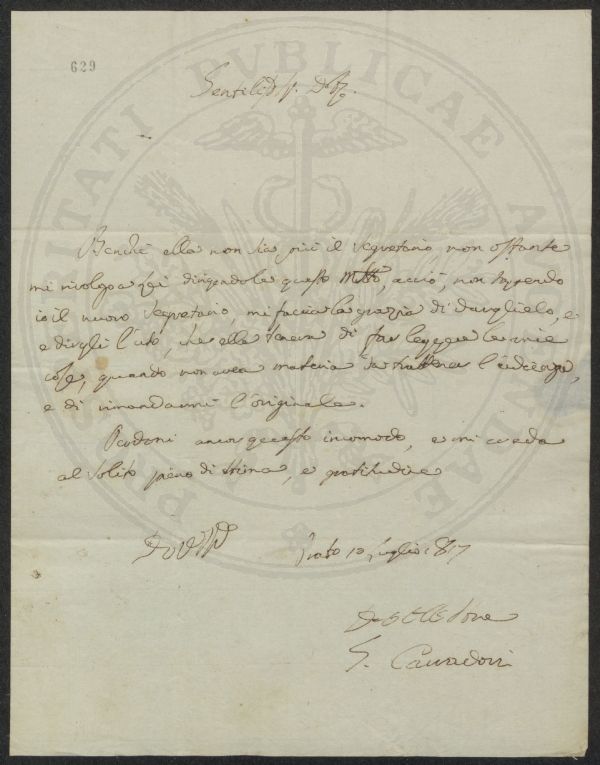 629
Gentiliss. S. Dre.
Benchè ella non sia più il Segretario, non ostante
mi rivolgo a Lei dirigendole questo Mtto, acciò, non sapendo
io il nuovo Segretario, mi faccia la grazia di darglielo, e
e dirgli l'uso, che ella teneva di far leggere le mie
cose, quando non avea materia da trattener l'udienza,
e di rimandarmi l'originale.
Perdoni ancor questo incomodo, e mi creda
al solito pieno di stima, e gratitudine
Prato 10 Luglio 1817
G. Carradori
PROSPERITATI PUBLICAE AUGENDAE